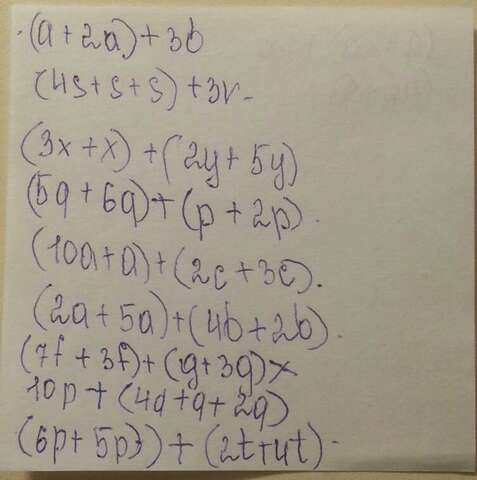 (a + 2a) + 3b
(4s + s + s) + 3r
(3x + x) + (2y + 5y)
(5q + 6q) + (p + 2p).
(10a + a) + (2c + 3c).
(2a + 5a) + (4b + 2b).
(7f + 3f) + (g + 3g)
10p + (4q + q + 2q)
(6p + 5p) + (2t + 4t)